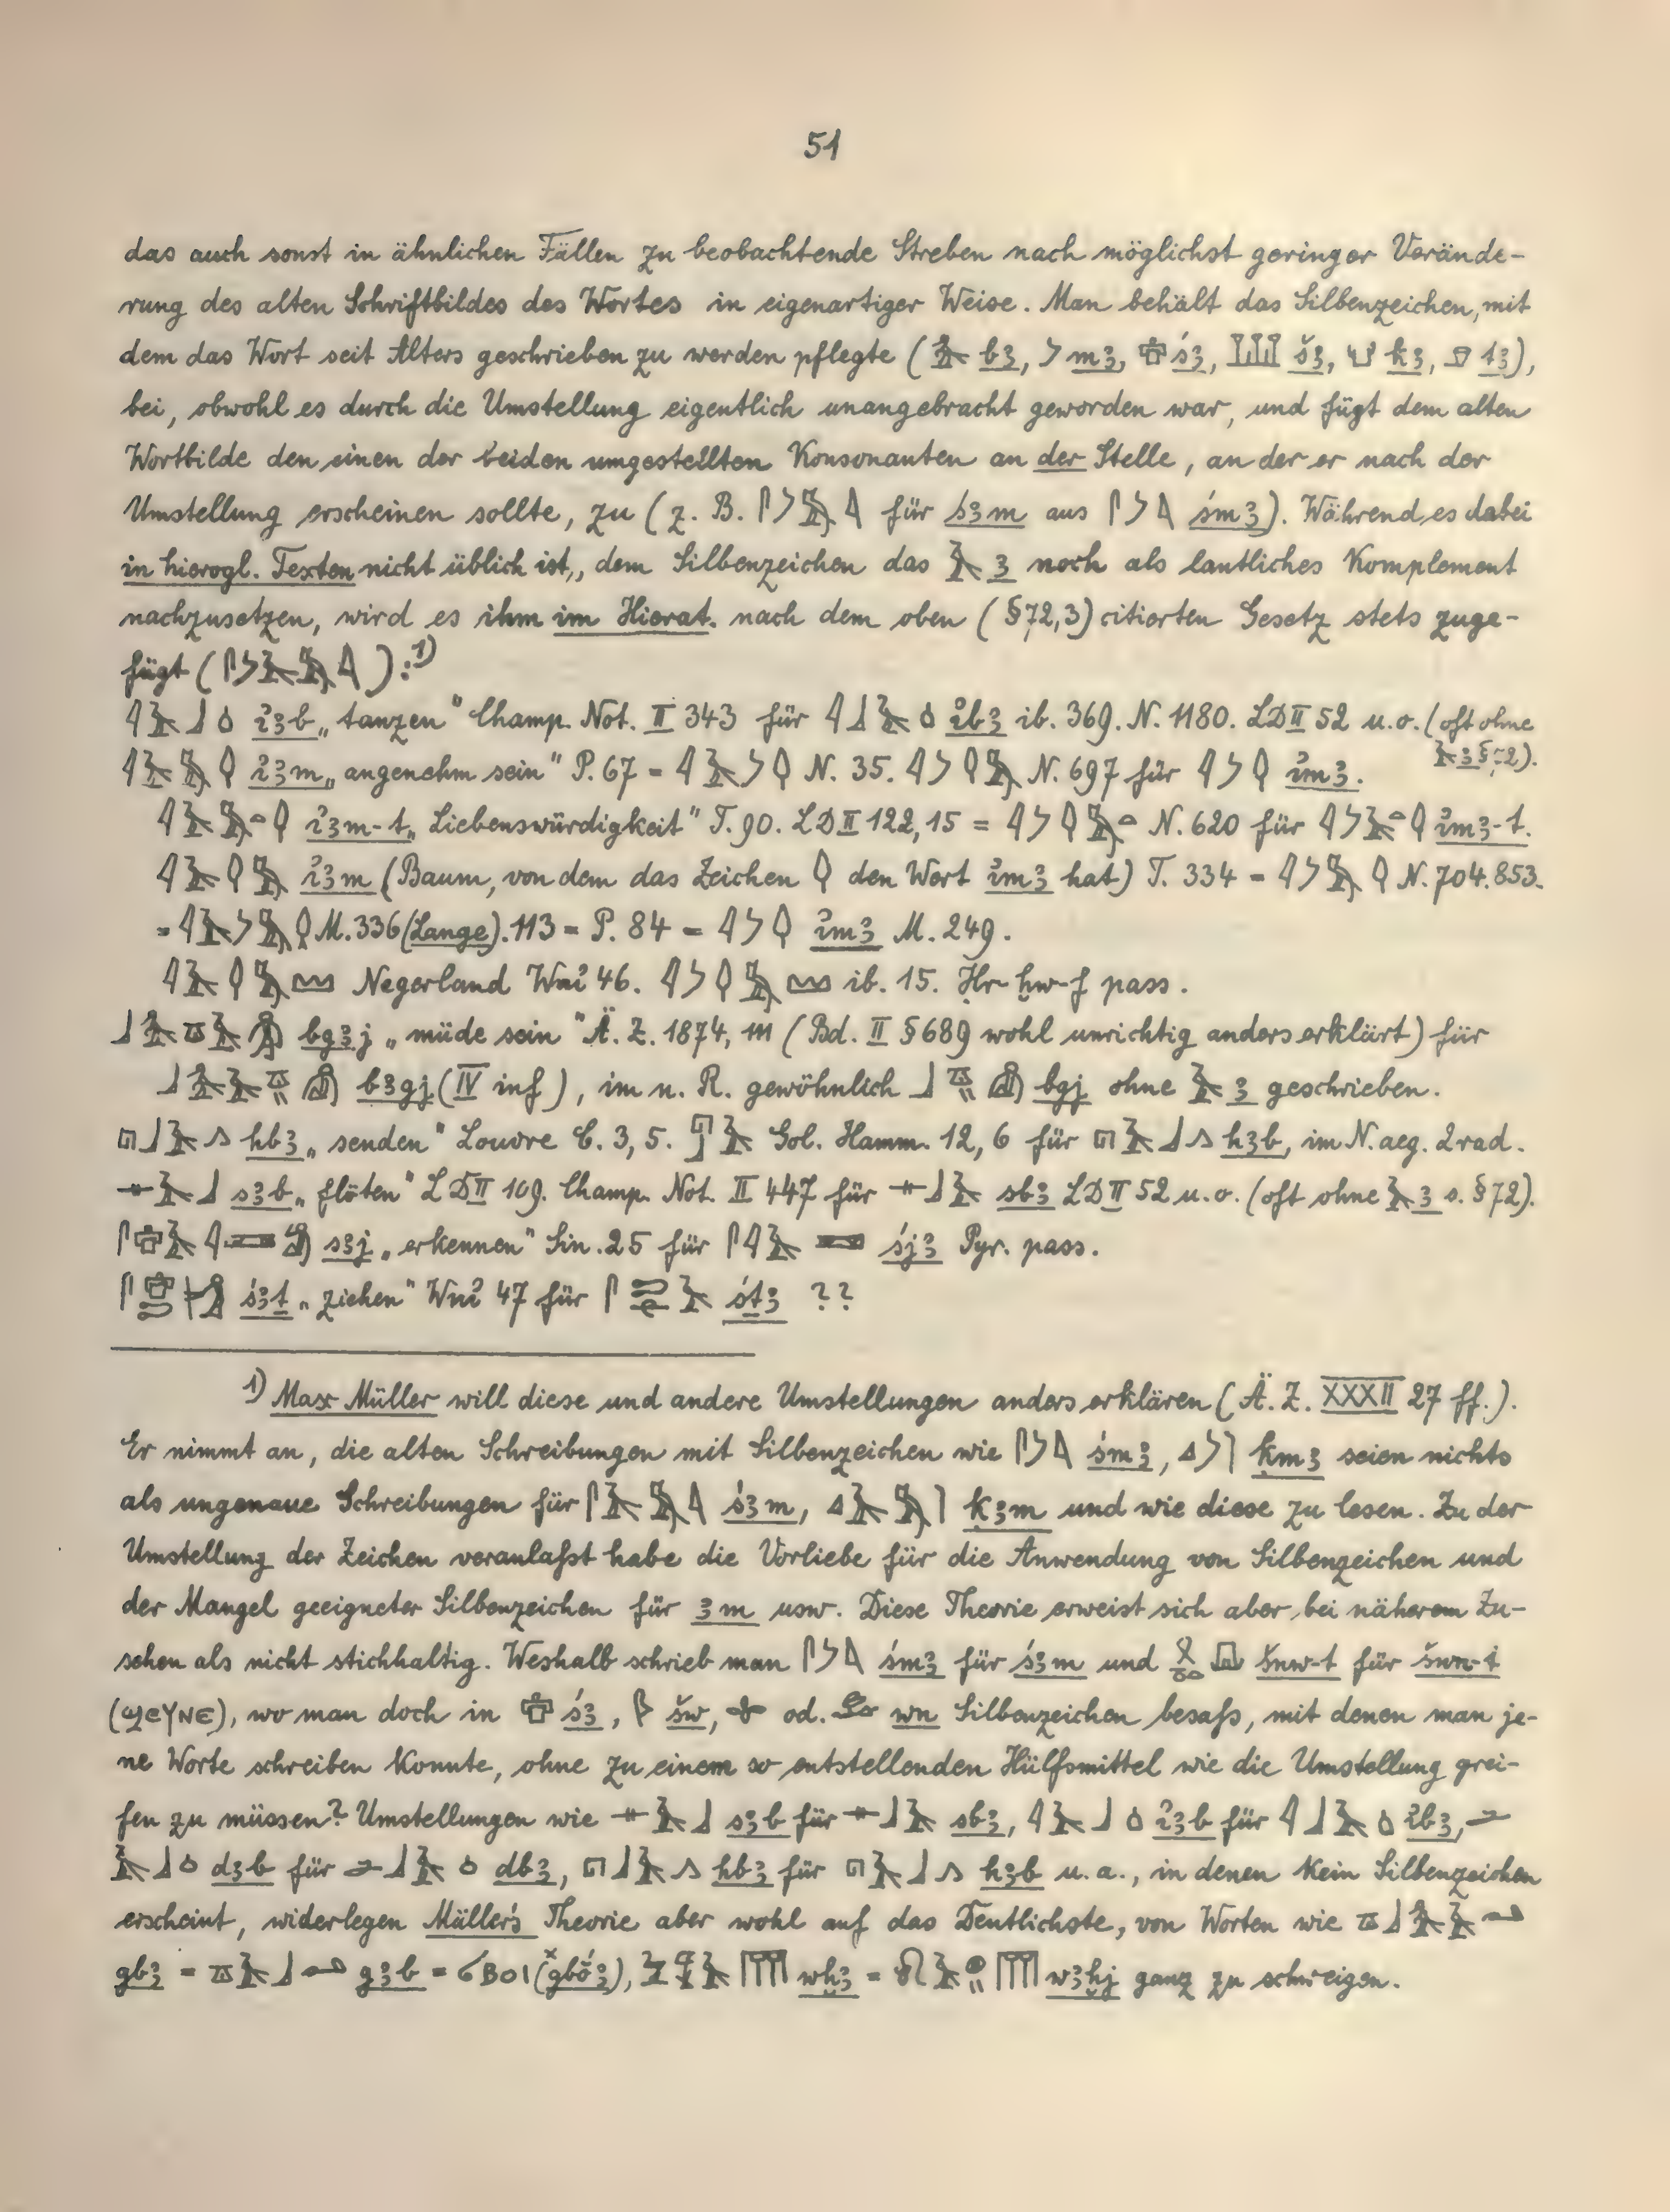 51
das auch sonst in ähnlichen Fällen zu beobachtende Streben nach möglichst geringer Verände-
rung des alten Schriftbildes des Wortes in eigenartiger Weise. Man behält das Silbenzeichen, mit
dem das Wort seit Alters geschrieben zu werden pflegte ( bꜣ, mꜣ, śꜣ, šꜣ, kꜣ, tꜣ),
bei, obwohl es durch die Umstellung eigentlich unangebracht geworden war, und fügt dem alten
Wortbilde den einen der beiden umgestellten Konsonanten an der Stelle, an der er nach der
Umstellung erscheinen sollte, zu (z. B. für śꜣm aus śmꜣ). Während es dabei
in hierogl. Texten nicht üblich ist, dem Silbenzeichen das 𓄿 ꜣ noch als lautliches Komplement
nachzusetzen, wird es ihm im Hierat. nach dem oben (§72,3) citierten Gesetz stets zuge-
fügt ( ):¹)
𓇋𓄿𓃀 i҆ꜣb „tanzen" Champ. Not. II 343 für 𓇋𓃀𓄿 i҆bꜣ ib. 369. N. 1180. LD II 52 u. o. (oft ohne
𓄿 ꜣ § 72).
i҆ꜣm „angenehm sein" P. 67 = N. 35. N. 697 für i҆mꜣ.
i҆ꜣm-t „Liebenswürdigkeit" T. 90. LD II 122, 15 = N. 620 für i҆mꜣ-t.
i҆ꜣm (Baum, von dem das Zeichen den Wert i҆mꜣ hat) T. 334 = N. 704. 853.
= M. 336 (Lange). 113 = P. 84 = i҆mꜣ M. 249.
Negerland Wni҆ 46. ib. 15. Ḥr-ḫw-f pass.
bgꜣj „müde sein" Ä. Z. 1874, 111 (Bd. II § 689 wohl unrichtig anders erklärt) für
bꜣgj (IV inf), im n. R. gewöhnlich bgj ohne 𓄿 ꜣ geschrieben.
hbꜣ „senden" Louvre C. 3, 5. Gol. Hamm. 12, 6 für hꜣb, im N. aeg. 2 rad.
𓊃𓄿𓃀 sꜣb „flöten" LD II 109. Champ. Not. II 447 für 𓊃𓃀𓄿 sbꜣ LD II 52 u. o. (oft ohne 𓄿 ꜣ s. § 72).
sꜣj „erkennen" Sin. 25 für śjꜣ Pyr. pass.
śꜣṯ „ziehen" Wni҆ 47 für śṯꜣ ??
¹) Max Müller will diese und andere Umstellungen anders erklären (Ä. Z. XXXII 27 ff.).
Er nimmt an, die alten Schreibungen mit Silbenzeichen wie śmꜣ, ḳmꜣ seien nichts
als ungenaue Schreibungen für śꜣm, ḳꜣm und wie diese zu lesen. Zu der
Umstellung der Zeichen veranlaßt habe die Vorliebe für die Anwendung von Silbenzeichen und
der Mangel geeigneter Silbenzeichen für ꜣm usw. Diese Theorie erweist sich aber bei näherem Zu-
sehen als nicht stichhaltig. Weshalb schrieb man śmꜣ für śꜣm und šnw-t für šwn-t
(ϣⲉⲩⲛⲉ), wo man doch in śꜣ, šw, od. wn Silbenzeichen besaß, mit denen man je-
ne Worte schreiben konnte, ohne zu einem so entstellenden Hülfsmittel wie die Umstellung grei-
fen zu müssen? Umstellungen wie 𓊃𓄿𓃀 sꜣb für 𓊃𓃀𓄿 sbꜣ, i҆ꜣb für i҆bꜣ,
dꜣb für dbꜣ, hbꜣ für hꜣb u. a., in denen kein Silbenzeichen
erscheint, widerlegen Müller's Theorie aber wohl auf das Deutlichste, von Worten wie
gbꜣ = gꜣb = ϭⲃⲟⲓ (gbóꜣ), wḫꜣ = wꜣḫj ganz zu schweigen.